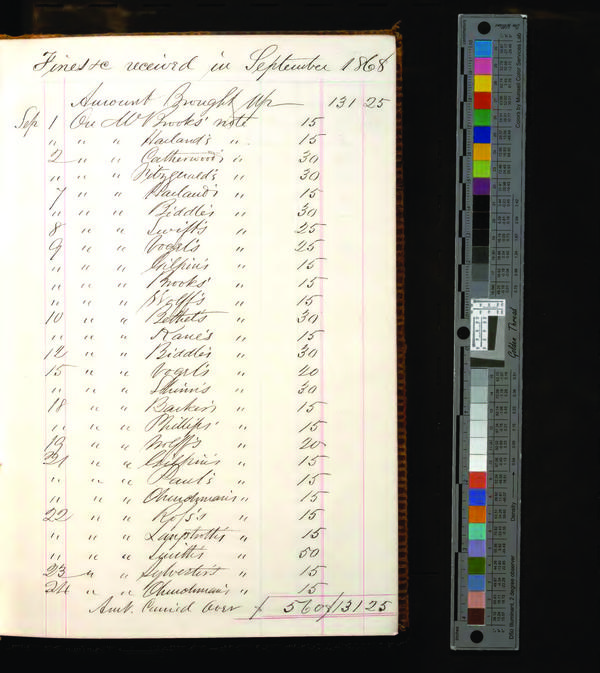 Fines &c received in September 1868
Amount Brought Up 131 25
Sep 1 On Mr Brooks' note 15
" " " Harland's " 15
2 " " Catherwood's " 30
" " " Fitzgerald's " 30
7 " " Harland's " 15
" " " Biddle's " 30
8 " " Swift's " 25
9 " " Vogel's " 25
" " " Gilpin's " 15
" " " Brooks' " 15
" " " Wolff's " 15
10 " " Bethel's " 30
" " " Kane's " 15
12 " " Biddle's " 30
15 " " Vogel's " 20
" " " 30
18 " " Barker's " 15
" " " Phillips' " 15
19 " " Wolff's " 20
21 " " Gilpin's " 15
" " " Paul's " 15
" " " Churchman's " 15
22 " " Ross's " 15
" " " " 15
" " " Smith's " 50
23 " " Sylvester's " 15
24 " " Churchman's " 15
Amt. Carried Over 560 131 25
Golden Thread
Density